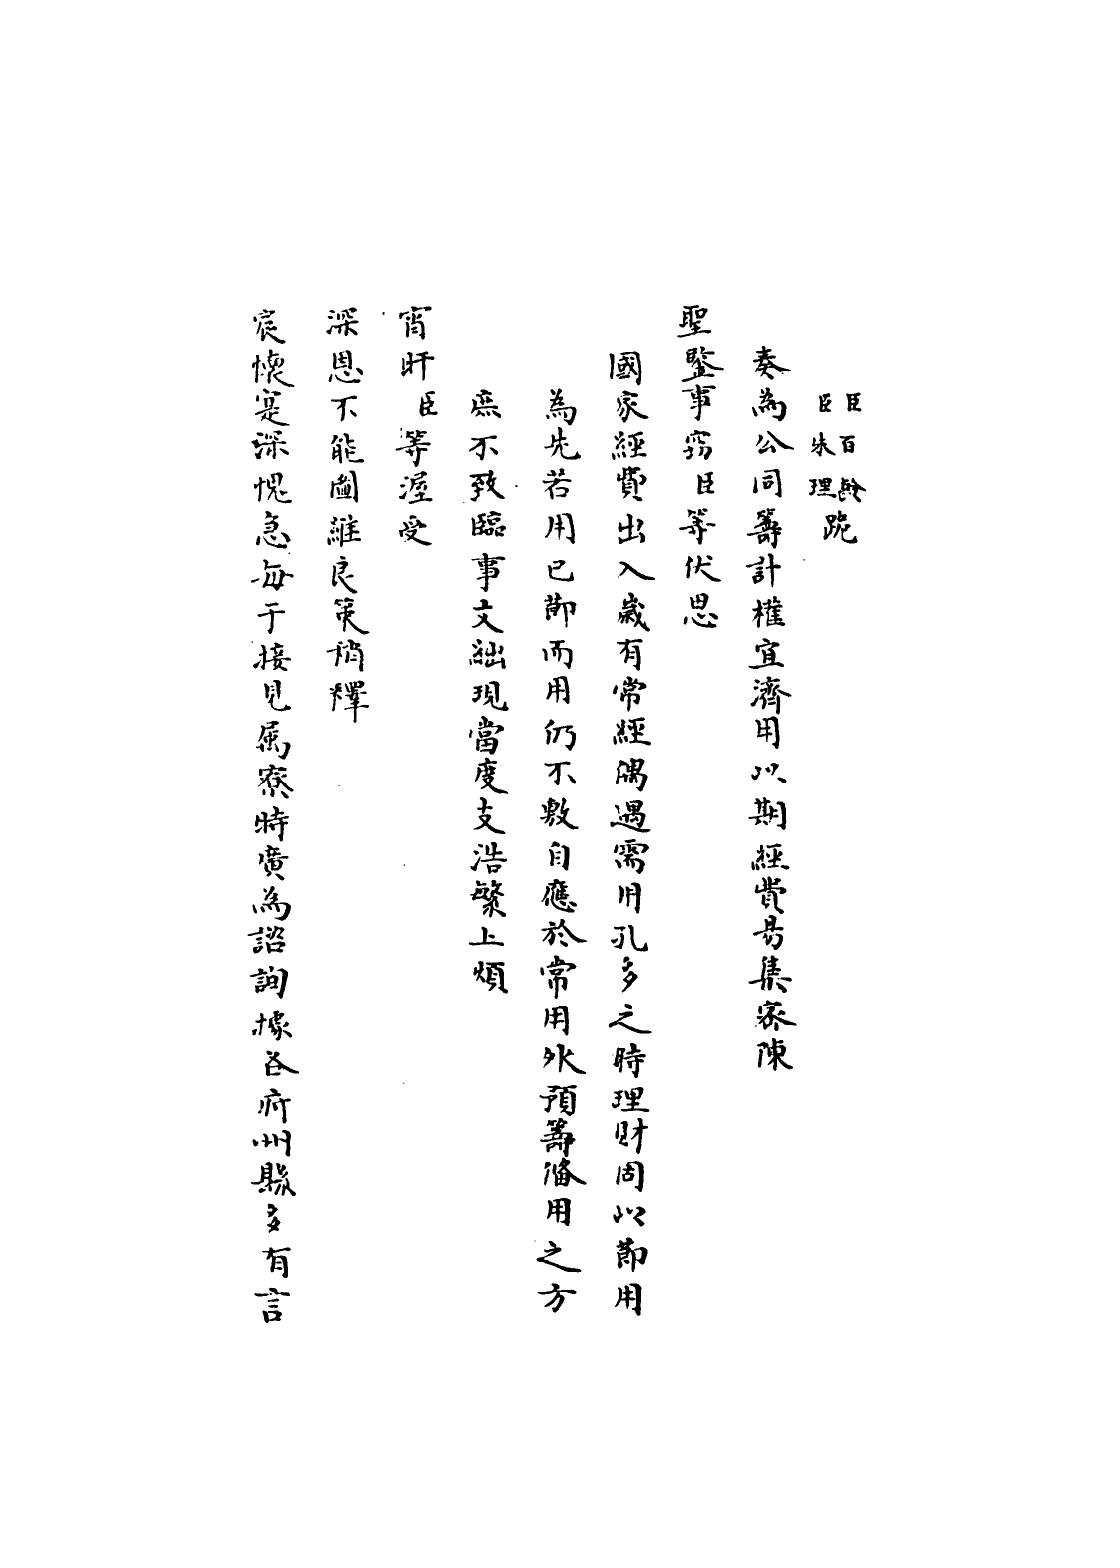 臣百齡
臣朱理跪
奏為公同籌計權宜濟用以期經費易集密陳
聖鑒事竊臣等伏思
國家經費出入歲有常經偶遇需用孔多之時理財固以節用
為先若用已節而用仍不敷自應於常用外預籌備用之方
庶不致臨事支絀現當度支浩繁上煩
宵旰臣等渥受
深恩不能圖維良策稍釋
宸懷寔深愧急每于接見屬寮時廣為諮詢據各府州縣多有言